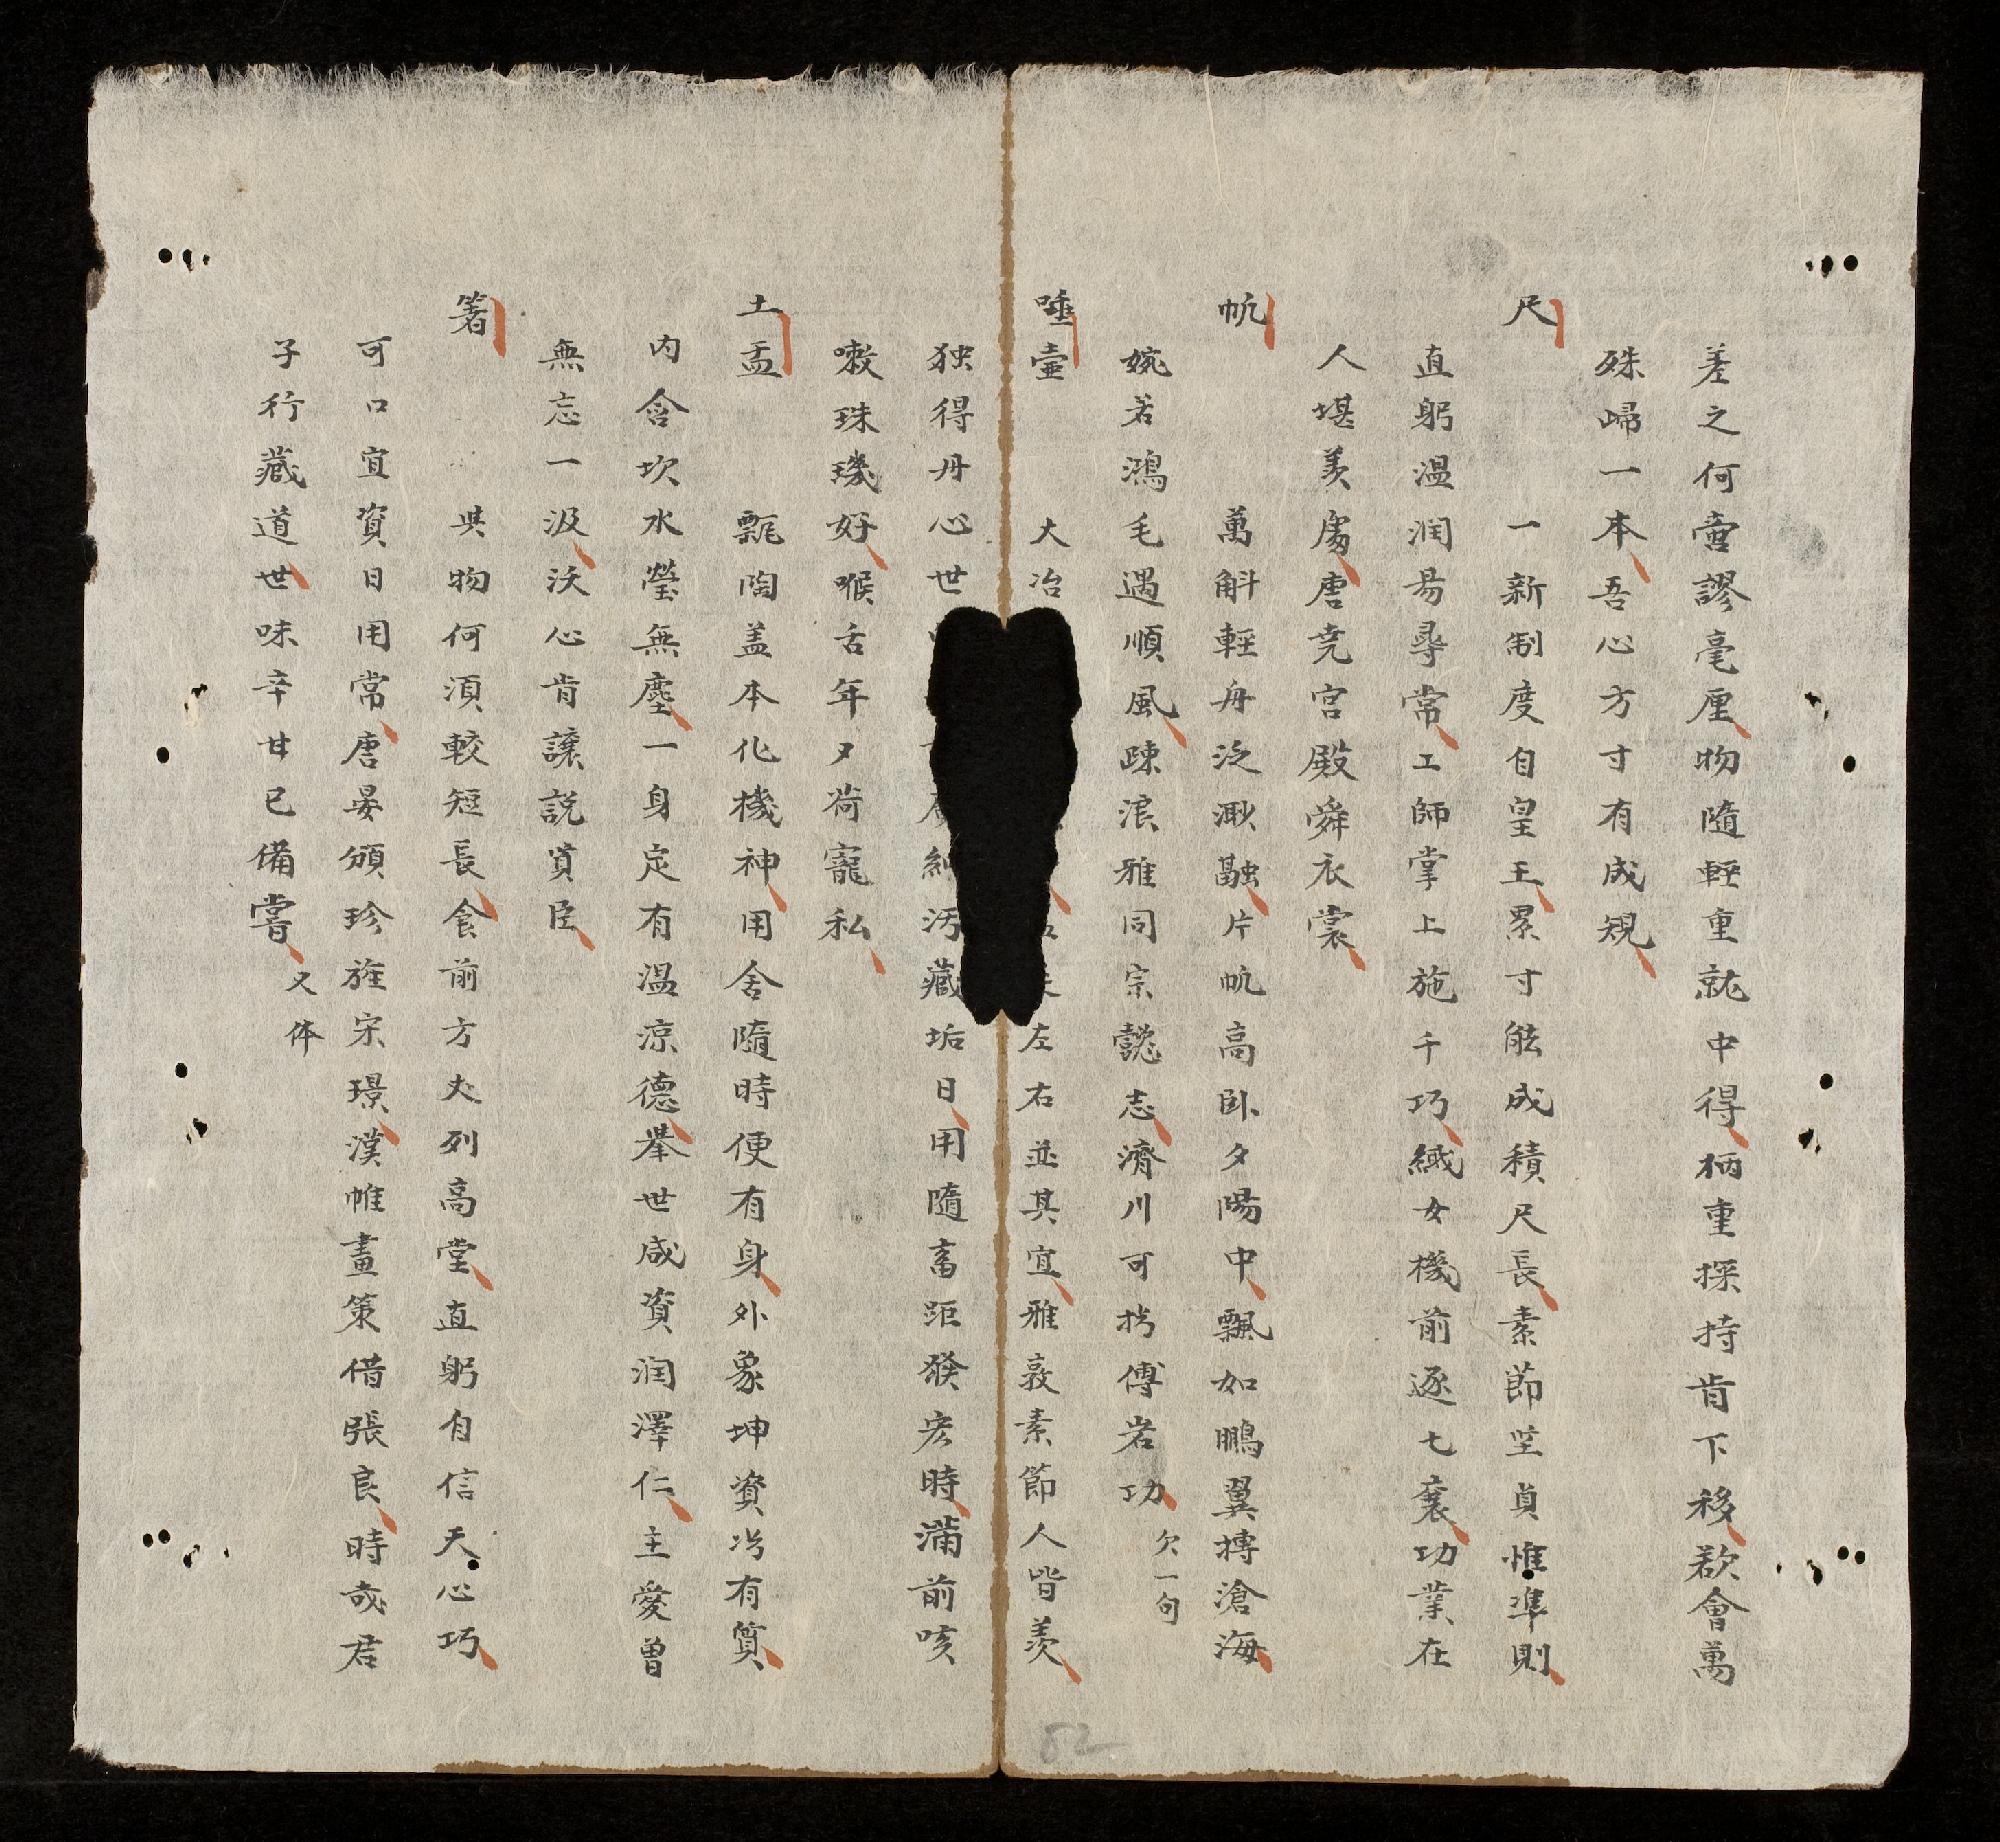 差之何啻謬毫厘物隨輕重就中得柄重探持肯下移欲會萬
殊歸一本吾心方寸有成規
尺
一新制度自皇王累寸能成積尺長素節坚貞惟準則
直躬温润昜尋常工師掌上施千巧織女機前逐七襄功業在
人堪羡處唐尭宫殿舜衣裳
帆
萬斛輕舟泛溵融片帆高卧夕陽中飄如鵬翼摶滄海
婉若鴻毛遇順風踈浪雅同宗懿志濟川可扵傅岩功
欠一句
唾壷
大冶
左右並其宜雅敦素節人皆羡
独得丹心世
納汚藏垢日用隨畜距發宏時满前咳
嗽珠璣好喉舌年夕荷寵私
土盂
甎陶盖本化機神用舍隨時便有身外象坤資㳂有質
内含坎水瑩無塵一身定有温凉德举世咸資润澤仁主愛曽
無忘一汲沃心肯讓説賞臣
箸
與物何湏較短長食前方丈列高堂直躬自信天心巧
可口宜資日用常唐晏頒珍旌宋璟漢帷畫策借張良時哉君
子行藏道世味辛甘已備嘗
又体